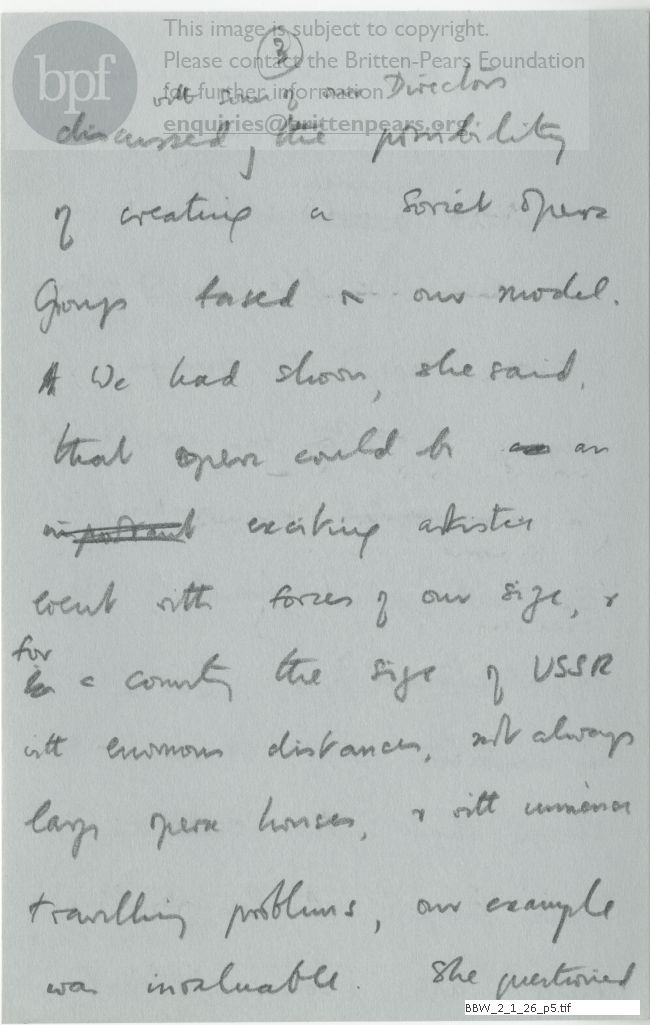 This image is subject to copyright.
Please contact the Britten-Pears Foundation
for further information
enquiries@brittenpears.org
bpf
2
with some of our Directors
discussed, the possibility
of creating a Soviet Opera
Group based on our model.
We had shown, she said,
that opera could be an
important exciting artistic
event with forces of our size, &
for
a country the size of USSR
with enormous distances, not always
large opera houses, & with immense
travelling problems, our example
was invaluable. She questioned
BBW_2_1_26_p5.tif